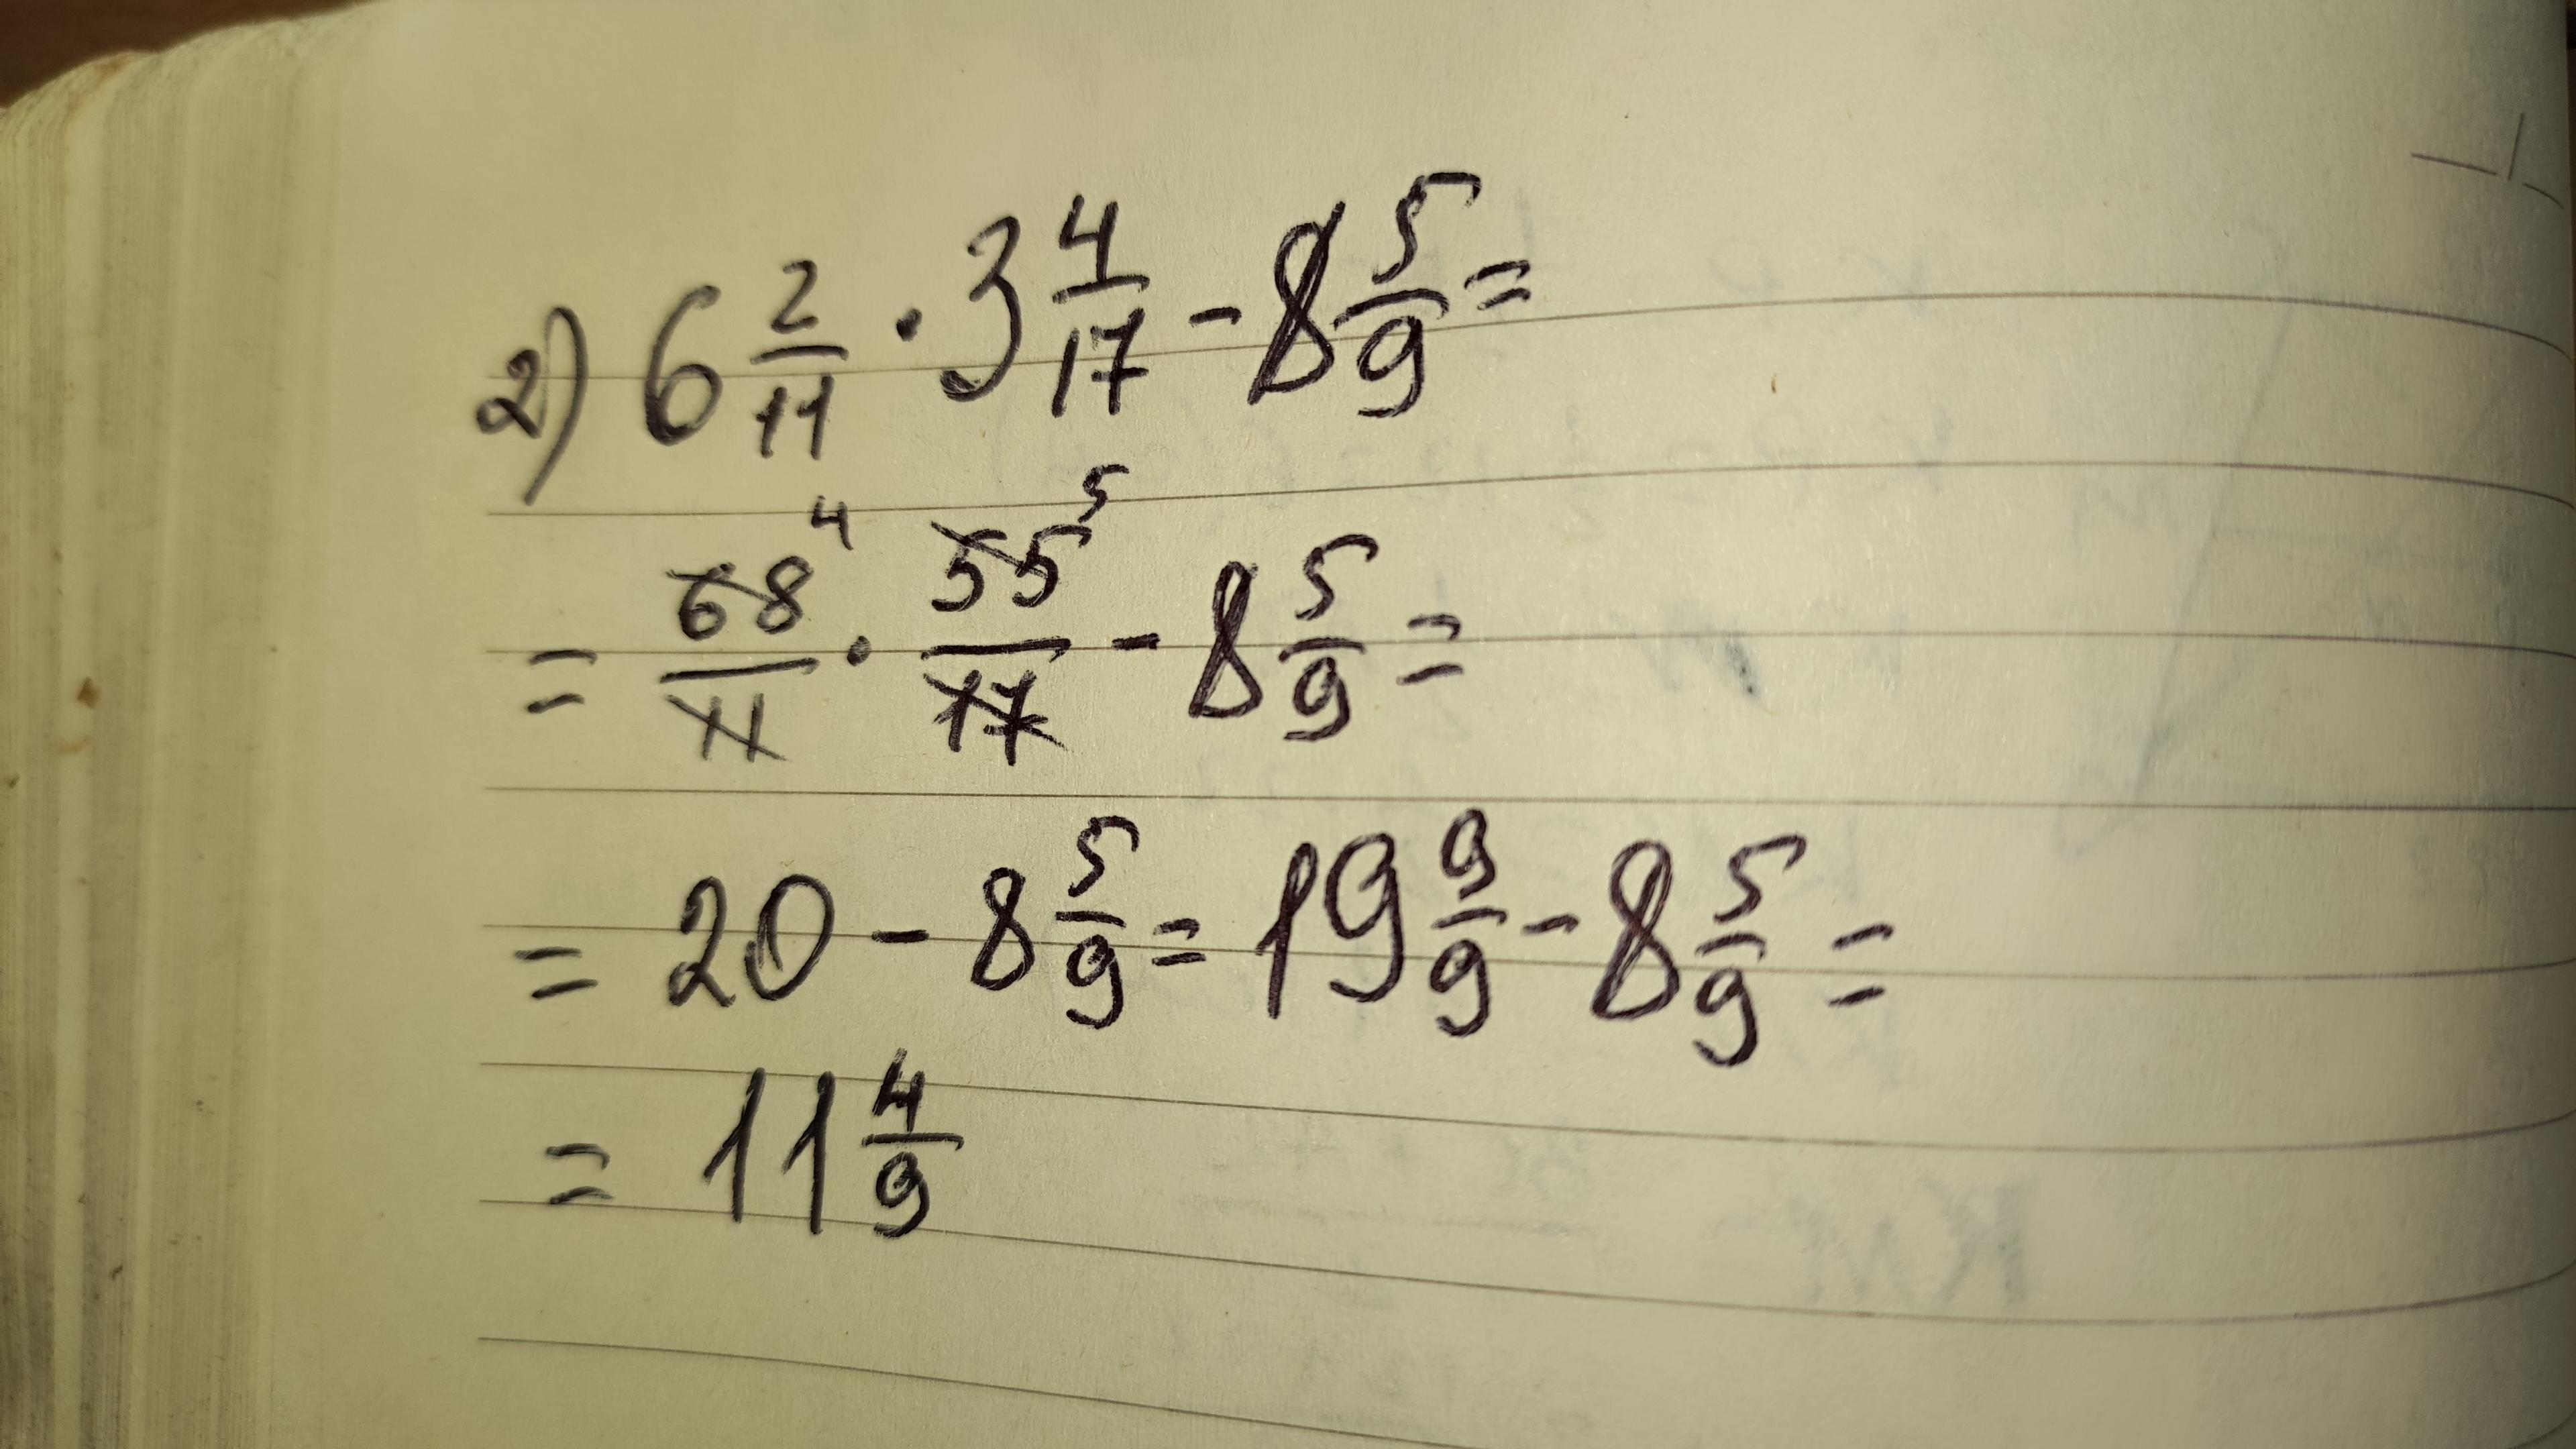 2) 6 2/11 · 3 4/17 - 8 5/9 =
= 68/11 ⁴ · 55/17 ⁵ - 8 5/9 =
= 20 - 8 5/9 = 19 9/9 - 8 5/9 =
= 11 4/9